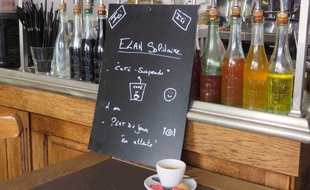 ECAN Solidaire
- "Café - Suspendu"
- Plat du jour
"en attente"